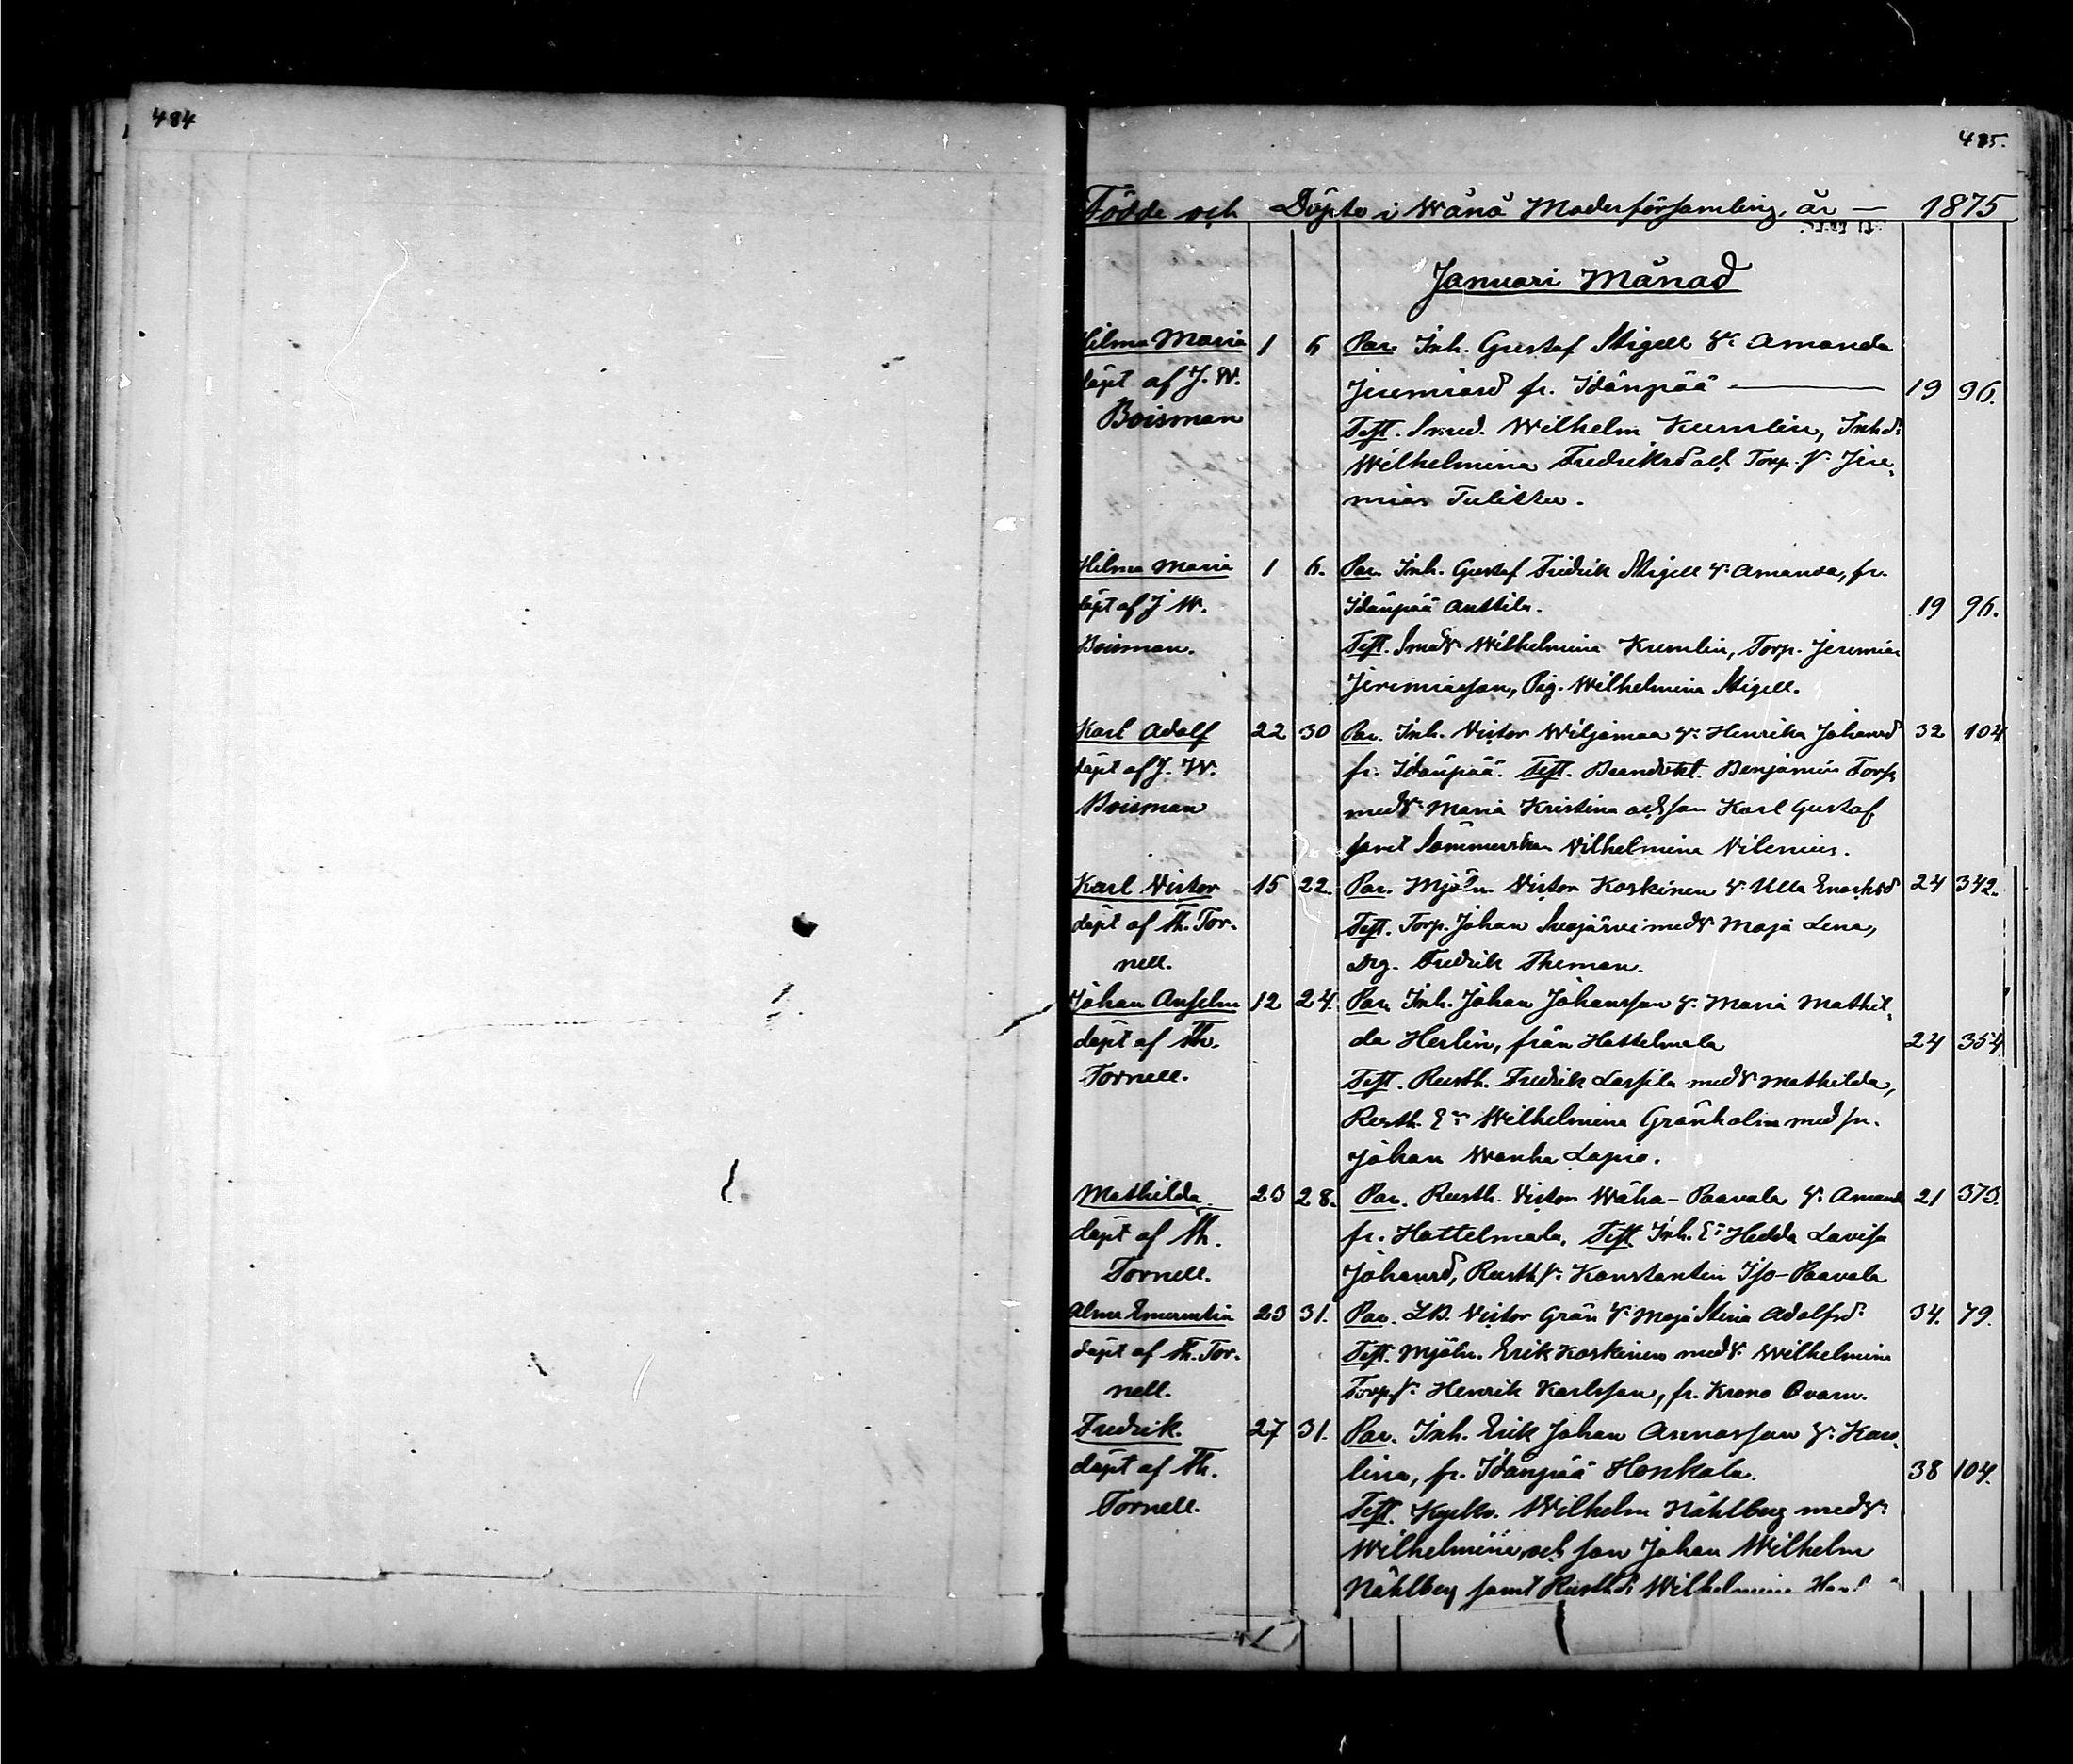 484
485.
Födde och Döpte i Wånå Moderförsamling, år — 1875
Januari Månad
Hilma Maria 1 6 Par. Inh. Gustaf Stigell & h. Amanda
döpt af J. W. Jeremiasd fr. Idänpää — 19 96.
Boisman Test. Smed. Wilhelm Kumlin, Inhd.
Wilhelmina Fredriksd och Torp. s. Jere-
mias Tulikka.
Hilma Maria 1 6. Par. Inh. Gustaf Fredrik Stigell & h. Amanda, fr.
döpt af J. W. Idänpää Anttila. 19 96.
Boisman. Test. Smed h. Wilhelmina Kumlin, Torp. Jeremias
Jeremiasson, Pig. Wilhelmina Stigell.
Karl Adolf 22 30 Par. Inh. Victor Wiljamaa & h. Henrika Johansd 32 104
döpt af J. W. fr. Idänpää. Test. Brandvkt. Benjamin Torp
Boisman med h. Maria Kristina och son Karl Gustaf
samt Sömmerskan Vilhelmina Vilenius.
Karl Victor 15 22. Par. Mjöln. Victor Koskinen & h. Ulla Enochsd 24 342.
döpt af Th. Tor- Test. Torp. Johan Suojärvi med h. Maja Lena,
nell. Drg. Fredrik Theman.
Johan Anselm 12 24. Par. Inh. Johan Johansson & h. Maria Mathil-
döpt af Th. da Herlin, från Hattelmala 24 354
Tornell. Test. Rusth. Fredrik Lassila med h. Mathilda,
Rusth. E:a Wilhelmina Grönholm med sn.
Johan Wanha Lapio.
Mathilda 23 28. Par. Rusth. Victor Wäha-Paavola & h. Amanda 21 373.
döpt af Th. fr. Hattelmala. Test. Inh. E: Hedda Lovisa
Tornell. Johansd, Rusth. s. Konstantin Iso-Paavola
Alma Emerentia 23 31. Par. LB. Victor Grön & h. Maja Stina Adolfsd 34. 79.
döpt af Th. Tor- Test. Mjöln. Erik Koskinen med h. Wilhelmina
nell. Torp. s. Henrik Karlsson, fr. Krono Qvarn.
Fredrik. 27 31. Par. Inh. Erik Johan Annasson & h. Karo-
döpt af Th. lina, fr. Idänpää Honkala. 38 104.
Tornell. Test. Wilhelm Nählberg med h.
Wilhelmina, och son Johan Wilhelm
Nählberg samt Rusthd. Wilhelmina